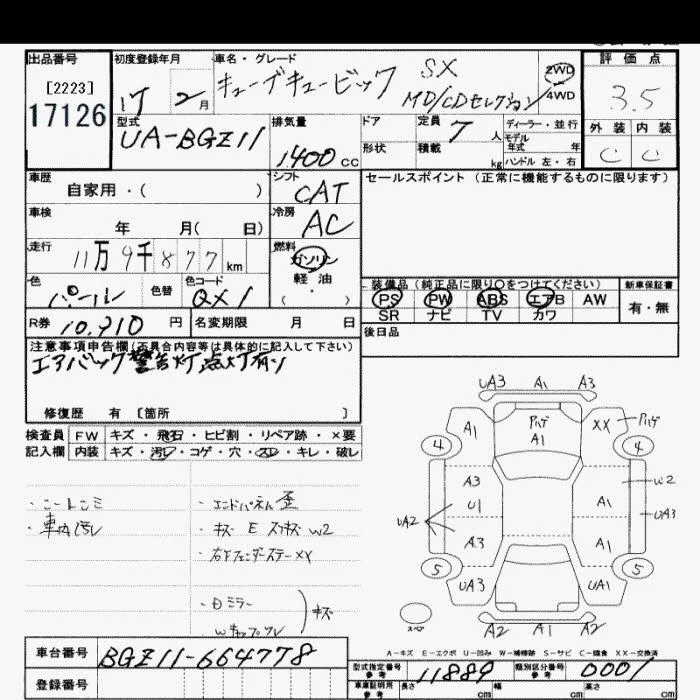 出品番号 初度登録年月 車名・グレード 評価点
[2223] キューブキュービック SX 2WD
17126 17 2月 MD/CDセレクション 4WD 3.5
型式 排気量 ドア 定員 7人 ディーラー・並行 外装 内装
UA-BGZ11 1400cc 形状 積載 kg モデル年式 年 C C
ハンドル 左・右
車歴 シフト セールスポイント (正常に機能するものに限ります)
自家用・( ) CAT
車検 冷房
年 月( 日) AC
走行 燃料
11万9千877km ガソリン
色 色替 色コード 軽油 装備品(純正品に限り○をつけてください) 新車保証書
パール QX1 ( ・ ) PS PW ABS エアB AW 有・無
R券 10,910円 名変期限 月 日 SR ナビ TV カワ
注意事項申告欄(不具合内容等は具体的に記入して下さい) 後日品
エアバック警告灯点灯有り
修復歴 有 [箇所 ]
検査員 FW キズ・飛石・ヒビ割・リペア跡・×要
記入欄 内装 キズ・汚レ・コゲ・穴・スレ・キレ・破レ
UA3 A1 A3
A1 A1 XX
4 4
A3 W2
U1 A1 UA3
UA2
A3 A1
5 5
UA3 UA1
A2 A1 A2
・車内汚レ
・エンドパネル歪
・キズ E W2
・右Fフェンダーステー XY
ミラー
キズ
A-キズ E-エクボ U-凹み W-補修跡 S-サビ C-腐食 XX-交換済
車台番号 BGZ11-664778 型式指定番号 参考 11889 類別区分番号 参考 0001
登録番号 車庫証明用 参考 長さ cm 幅 cm 高さ cm